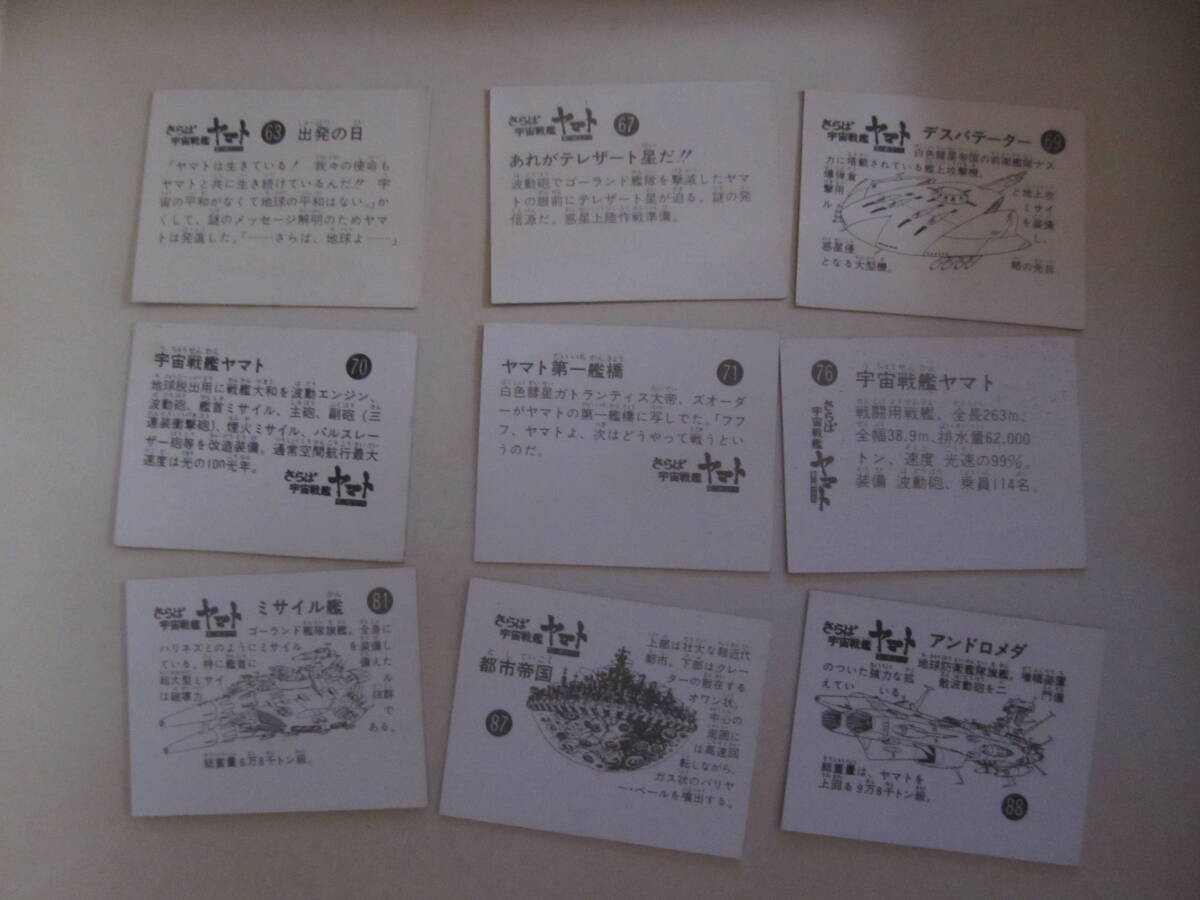 さらば
宇宙戦艦
ヤマト
63
出発の日
「ヤマトは生きている! 我々の使命も
ヤマトと共に生き続けているんだ!! 宇
宙の平和がなくて地球の平和はない。」か
くして、謎のメッセージ解明のためヤマ
トは発進した。「……さらば、地球よ……」
さらば
宇宙戦艦
ヤマト
67
あれがテレザート星だ!!
波動砲でゴーランド艦隊を撃滅したヤマ
トの眼前にテレザート星が迫る。謎の発
信源だ。惑星上陸作戦準備。
さらば
宇宙戦艦
ヤマト
デスバテーター
69
白色彗星帝国の前衛艦隊ナス
カに搭載されている艦上攻撃機。
爆弾倉
と地上攻
撃用
ミサイ
ル
を装備
し、
惑星侵
略の先兵
となる大型機。
宇宙戦艦ヤマト
70
地球脱出用に戦艦大和を波動エンジン、
波動砲、艦首ミサイル、主砲、副砲(三
連装衝撃砲)、煙火ミサイル、パルスレー
ザー砲等を改造装備。通常空間航行最大
速度は光の100光年。
さらば
宇宙戦艦
ヤマト
ヤマト第一艦橋
71
白色彗星ガトランティス大帝、ズオーダ
ーがヤマトの第一艦橋に写しでた。「フフ
フ、ヤマトよ、次はどうやって戦うとい
うのだ。
さらば
宇宙戦艦
ヤマト
76
宇宙戦艦ヤマト
さらば
宇宙戦艦
ヤマト
戦闘用戦艦、全長263m、
全幅38.9m、排水量62,000
トン、速度 光速の99%。
装備 波動砲、乗員114名。
さらば
宇宙戦艦
ヤマト
ミサイル艦
81
ゴーランド艦隊旗艦。全身に
ハリネズミのようにミサイル
を装備し
ている。特に艦首に
備えた
超大型ミサイ
ル
は破壊力
抜群
で
ある。
総重量6万8千トン級。
さらば
宇宙戦艦
ヤマト
都市帝国
87
上部は壮大な超近代
都市。下部はクレー
ターの散在する
オワン状。
中心の
周囲に
は高速回
転しながら、
ガス状のバリヤ
ー・ベールを噴出する。
さらば
宇宙戦艦
ヤマト
アンドロメダ
地球防衛艦隊旗艦。増幅装置
のついた強力な拡
散波動砲を二
門備
えてい
る。
総重量は、ヤマトを
上回る9万8千トン級。
88